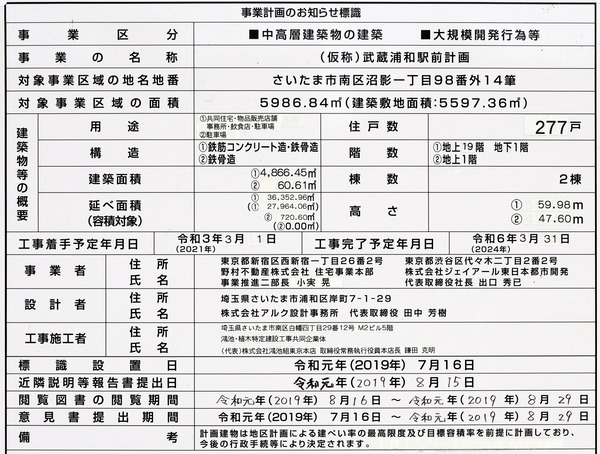 事業計画のお知らせ標識
事業区分 ■中高層建築物の建築 ■大規模開発行為等
事業の名称 (仮称)武蔵浦和駅前計画
対象事業区域の地名地番 さいたま市南区沼影一丁目98番外14筆
対象事業区域の面積 5986.84㎡(建築敷地面積:5597.36㎡)
建築物等の概要
用途 ①共同住宅・物品販売店舗
事務所・飲食店・駐車場
②駐車場
住戸数 277戸
構造 ①鉄筋コンクリート造・鉄骨造
②鉄骨造
階数 ①地上19階 地下1階
②地上1階
建築面積 ①4,866.45㎡
② 60.61㎡
棟数 2棟
延べ面積
(容積対象)
① 36,352.96㎡
(① 27,964.06㎡)
② 720.60㎡
(②0.00㎡)
高さ ① 59.98m
② 47.60m
工事着手予定年月日 令和3年3月 1日
(2021年)
工事完了予定年月日 令和6年3月31日
(2024年)
事業者 住所
氏名
東京都新宿区西新宿一丁目26番2号
野村不動産株式会社 住宅事業本部
事業推進二部長 小実 晃
東京都渋谷区代々木二丁目2番2号
株式会社ジェイアール東日本都市開発
代表取締役社長 出口 秀已
設計者 住所
氏名
埼玉県さいたま市浦和区岸町7-1-29
株式会社アルク設計事務所 代表取締役 田中 芳樹
工事施工者 住所
氏名
埼玉県さいたま市南区白幡四丁目29番12号 M2ビル5階
鴻池・植木特定建設工事共同企業体
(代表)株式会社鴻池組東京本店 取締役常務執行役員本店長 鎌田 克明
標識設置日 令和元年(2019年) 7月16日
近隣説明等報告書提出日 令和元年(2019年) 8月15日
閲覧図書の閲覧期間 令和元年(2019年) 8月16日 ～ 令和元年(2019年) 8月29日
意見書提出期間 令和元年(2019年) 7月16日 ～ 令和元年(2019年) 8月29日
備考 計画建物は地区計画による建ぺい率の最高限度及び目標容積率を前提に計画しており、
今後の行政手続等により決定されます。